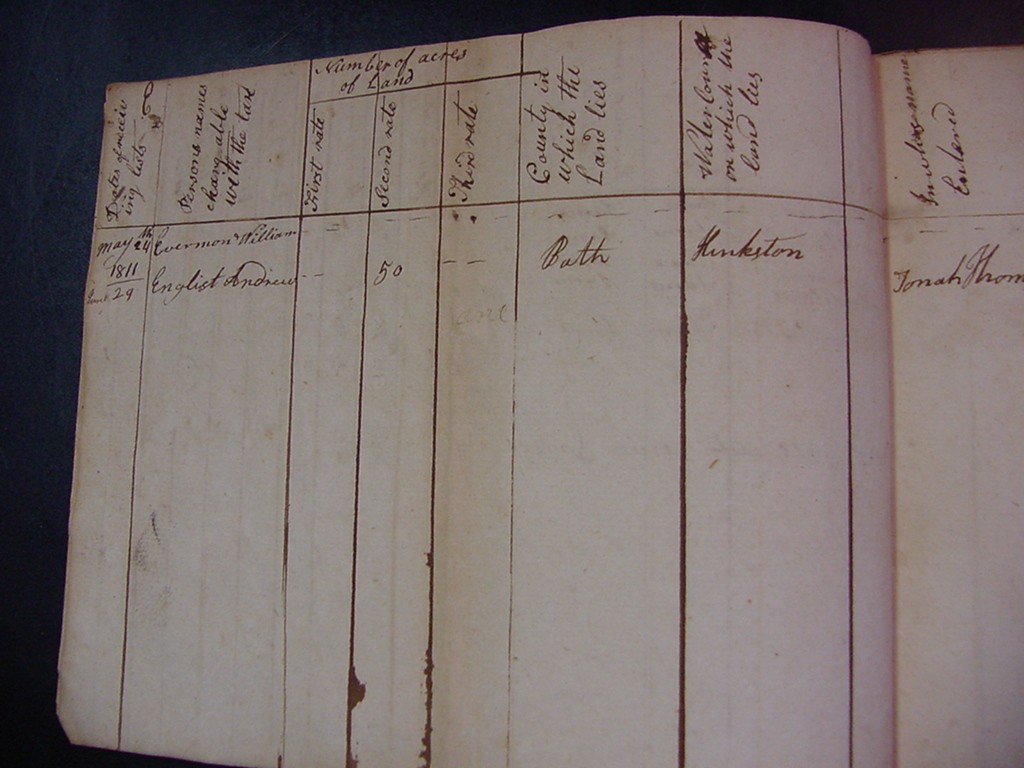 Dates of receiv
ing lists
Persons names
chargeable
with the tax
Number of acres
of Land
First rate
Second rate
Third rate
County in
which the
Land lies
Water course
on which the
land lies
In whose name
Entered
May 24th Evermon William
1811
June 29 English Andrew -- 50 -- Bath Hinkston Jonah Thom